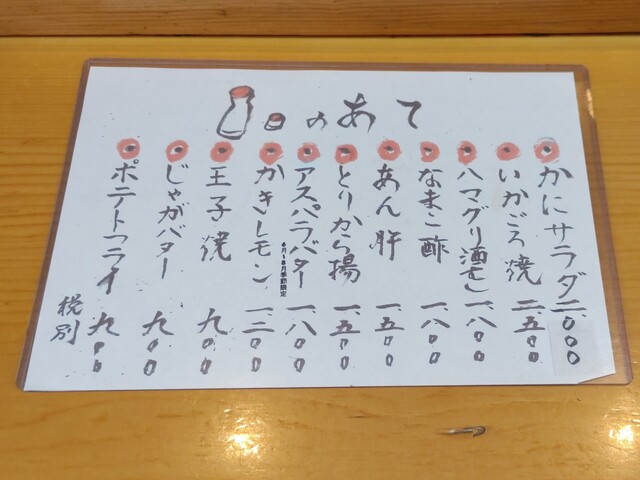 のあて
かにサラダ 二,〇〇〇
いかごろ焼 二,五〇〇
ハマグリ酒むし 一,八〇〇
なまこ酢 一,八〇〇
あん肝 一,五〇〇
とりから揚 一,五〇〇
アスパラバター 一,八〇〇
6月〜8月季節限定
かきレモン 一,二〇〇
玉子焼 九〇〇
じゃがバター 九〇〇
ポテトフライ 九〇〇
税別